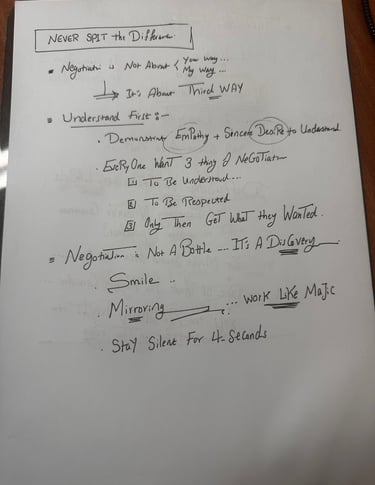 NEVER SPIT the Difference
Negotiation is Not About { Your Way...
My Way...
It's About Third WAY
Understand First :-
. Demonstrate EmPathy + Sincere Desire to Understand
. EveRyOne Want 3 thing of NeGoTiation
1 To Be Understand...
2 To Be Respected
3 Only Then Get What they Wanted.
Negotiation is Not A Battle .... IT's A DisCovery
. Smile ..
. Mirroring ... Work Like Majic
. Stay Silent For 4 Seconds